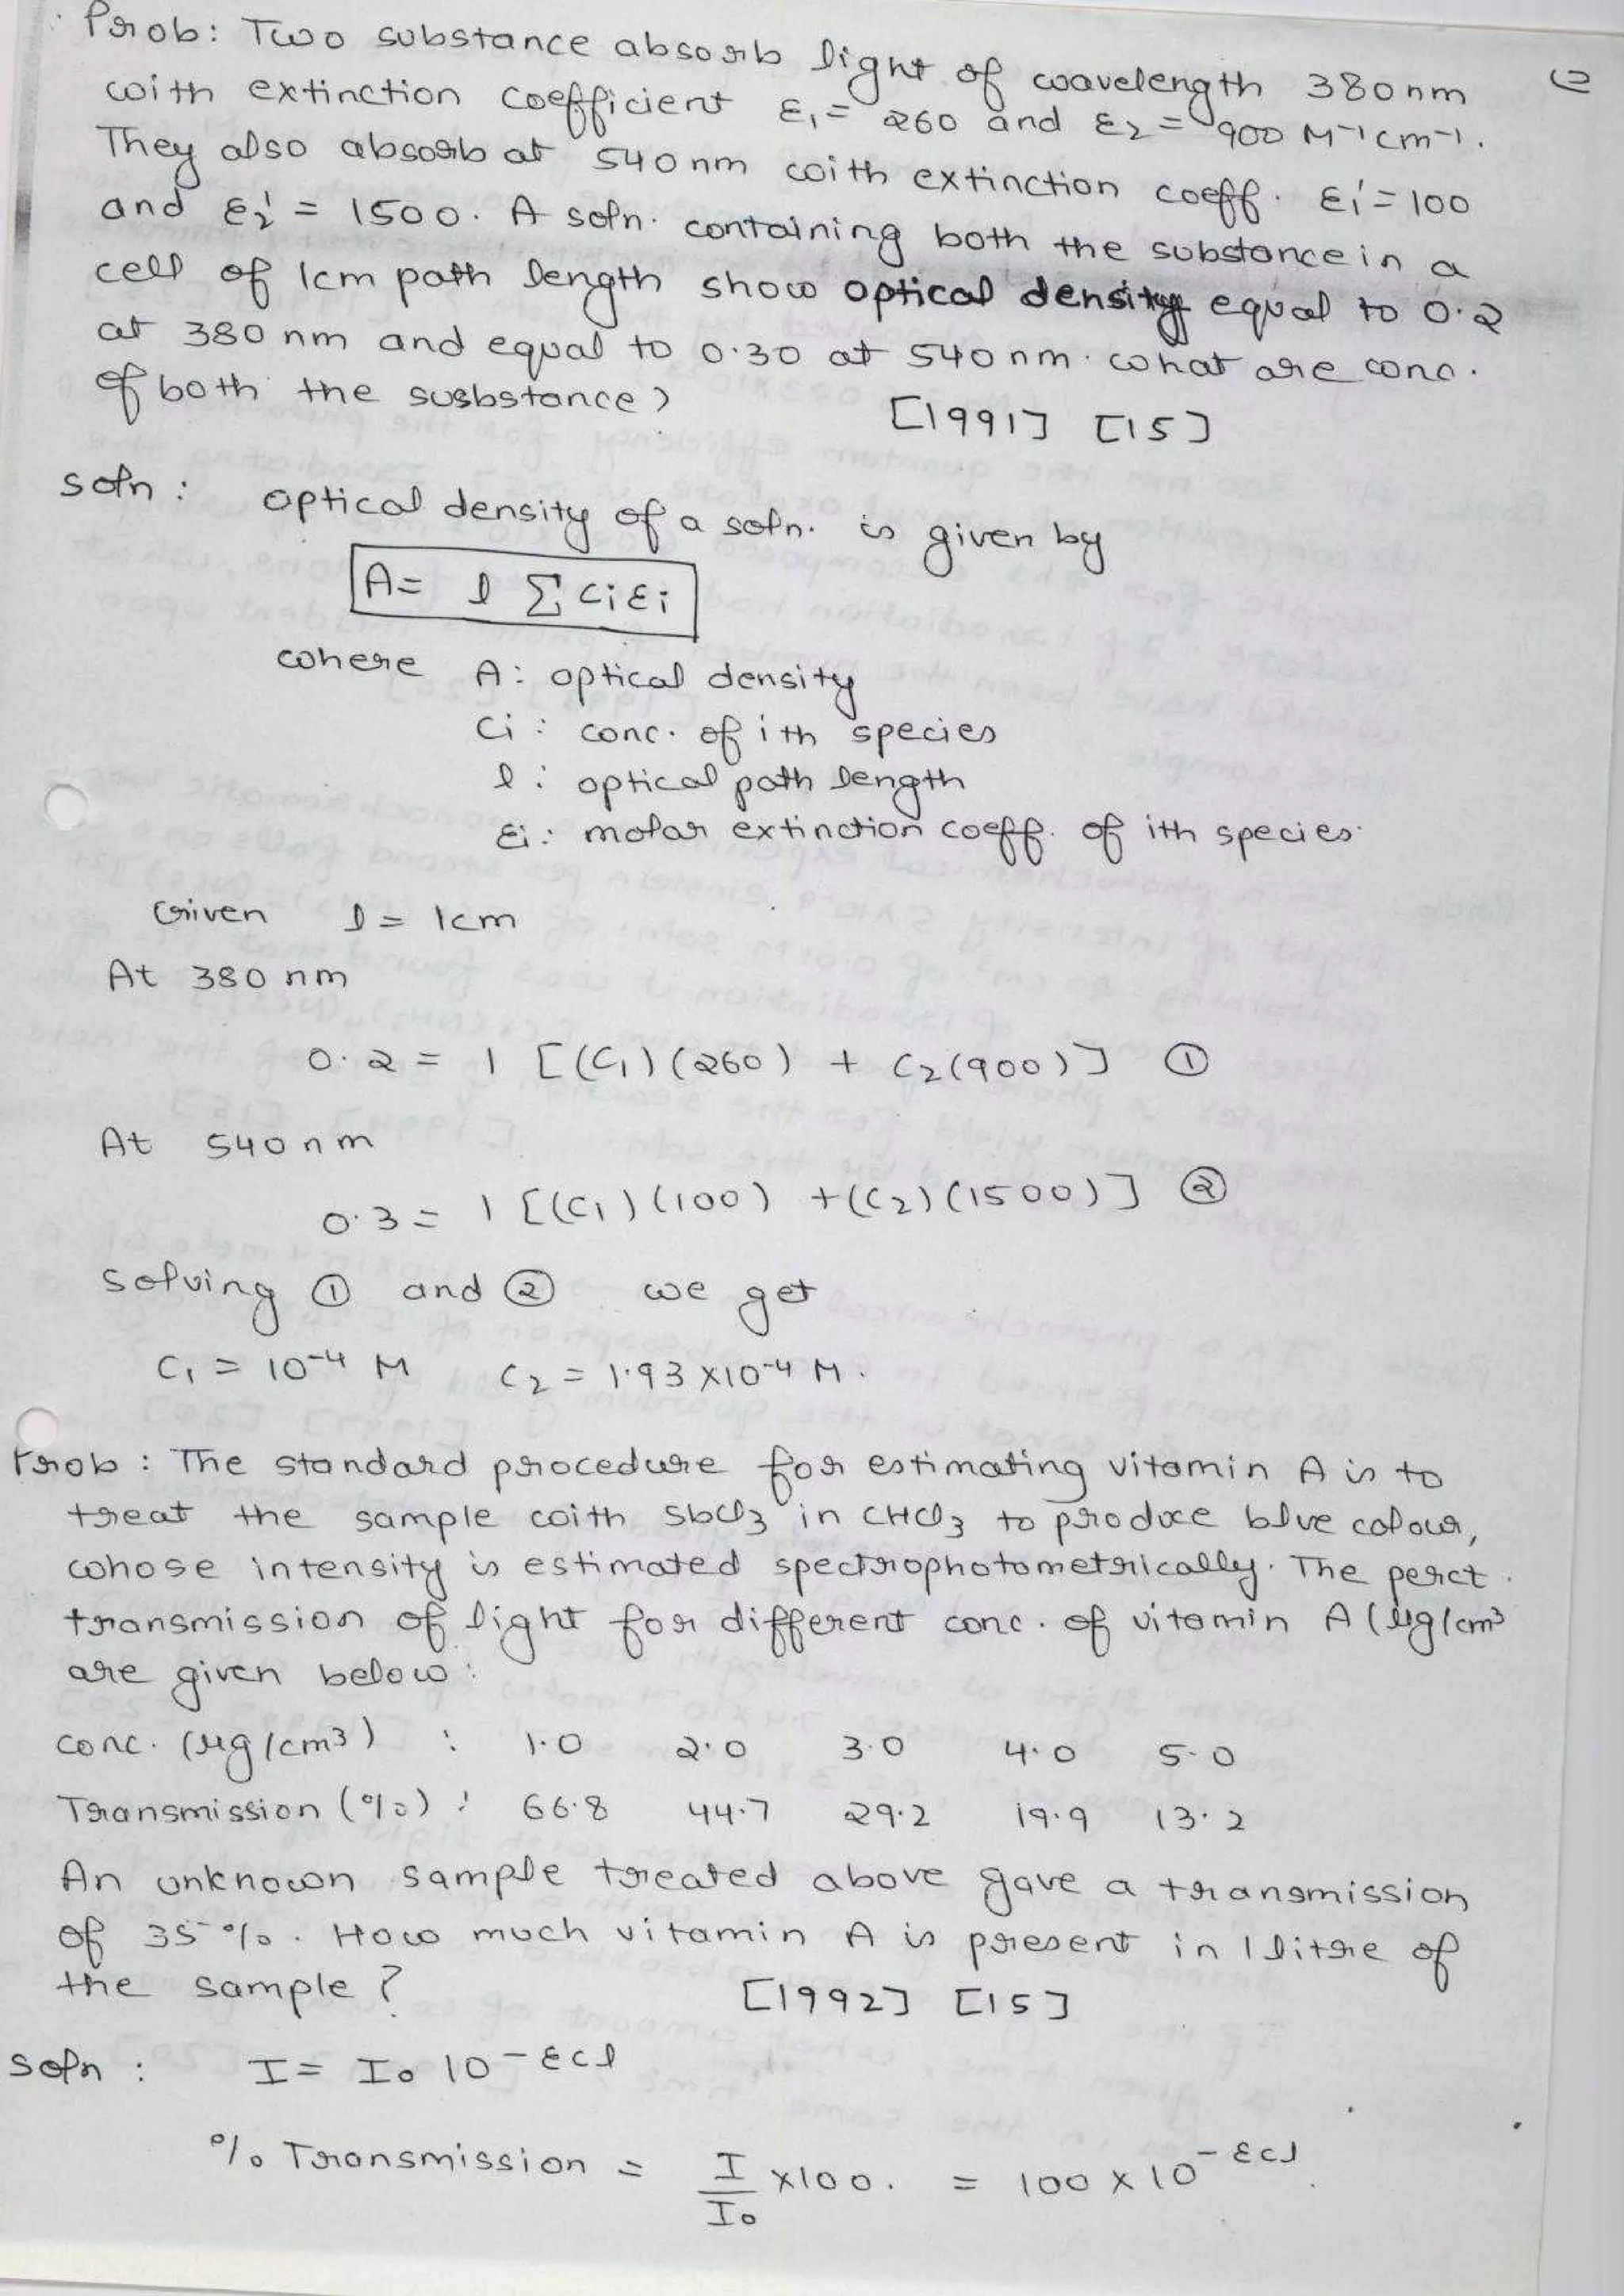 Prob: Two substance absorb light of wavelength 380nm
with extinction coefficient ε₁ = 260 and ε₂ = 900 M⁻¹cm⁻¹.
They also absorb at 540 nm with extinction coeff. ε₁' = 100
and ε₂' = 1500. A soln. containing both the substance in a
cell of 1cm path length show optical density equal to 0.2
at 380 nm and equal to 0.30 at 540 nm. What are conc.
of both the susbstance?
[1991] [15]
Soln: optical density of a soln. is given by
A = l Σ ci εi
where A: optical density
Ci: conc. of ith species
l: optical path length
εi: molar extinction coeff. of ith species.
Given l = 1cm
At 380 nm
0.2 = 1 [(C₁)(260) + C₂(900)] ①
At 540 nm
0.3 = 1 [(C₁)(100) + (C₂)(1500)] ②
Solving ① and ② we get
C₁ = 10⁻⁴ M C₂ = 1.93 ×10⁻⁴ M.
Prob: The standard procedure for estimating vitamin A is to
treat the sample with SbCl₃ in CHCl₃ to produce blue colour,
whose intensity is estimated spectrophotometrically. The perct.
transmission of light for different conc. of vitamin A (μg/cm³
are given below:
conc. (μg/cm³) : 1.0 2.0 3.0 4.0 5.0
Transmission (%) : 66.8 44.7 29.2 19.9 13.2
An unknown sample treated above gave a transmission
of 35 %. How much vitamin A is present in 1 litre of
the sample?
[1992] [15]
Soln : I = I₀ 10^-εcl
% Transmission = I/I₀ ×100. = 100 × 10^-εcl.